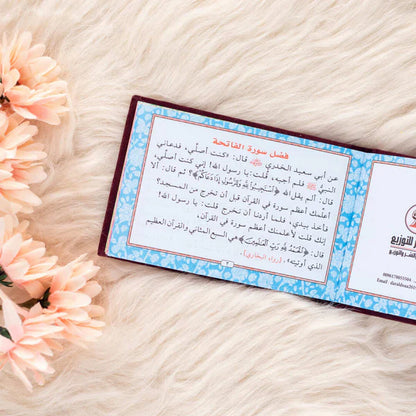 فضل سورة الفاتحة
عن أبي سعيد الخدري ﵁ قال: «كنت أصلي، فدعاني
النبي ﷺ فلم أجبه، قلت: يا رسول الله! إني كنت أصلي،
قال: ألم يقل الله ﴿اسْتَجِيبُوا لِلَّهِ وَلِلرَّسُولِ إِذَا دَعَاكُمْ﴾؟ ثم قال: ألا
أعلمك أعظم سورة في القرآن قبل أن تخرج من المسجد؟
فأخذ بيدي، فلما أردنا أن نخرج قلت: يا رسول الله!
إنك قلت لأعلمنك أعظم سورة في القرآن،
قال: ﴿الْحَمْدُ لِلَّهِ رَبِّ الْعَالَمِينَ﴾ هي السبع المثاني والقرآن العظيم
الذي أوتيته». (رواه البخاري).
٢
للتوزيع